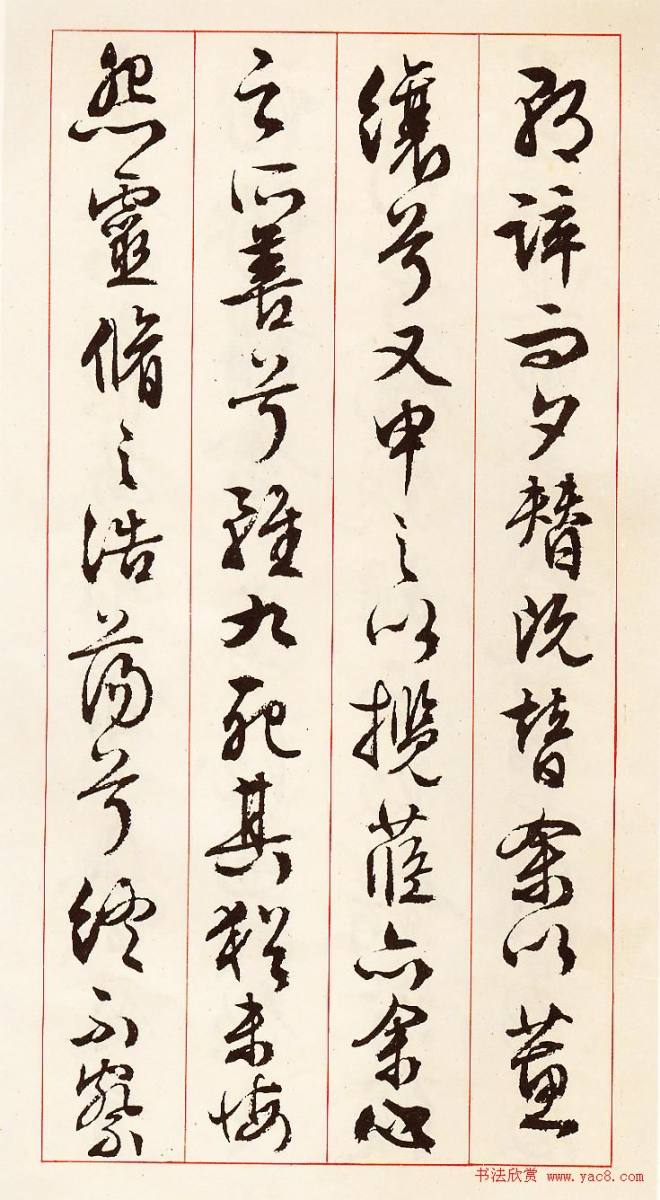 朝谇而夕替既替余以蕙
纕兮又申之以揽茝亦余心
之所善兮雖九死其猶未悔
怨靈脩之浩蕩兮終不察
书法欣赏 www.yac8.com